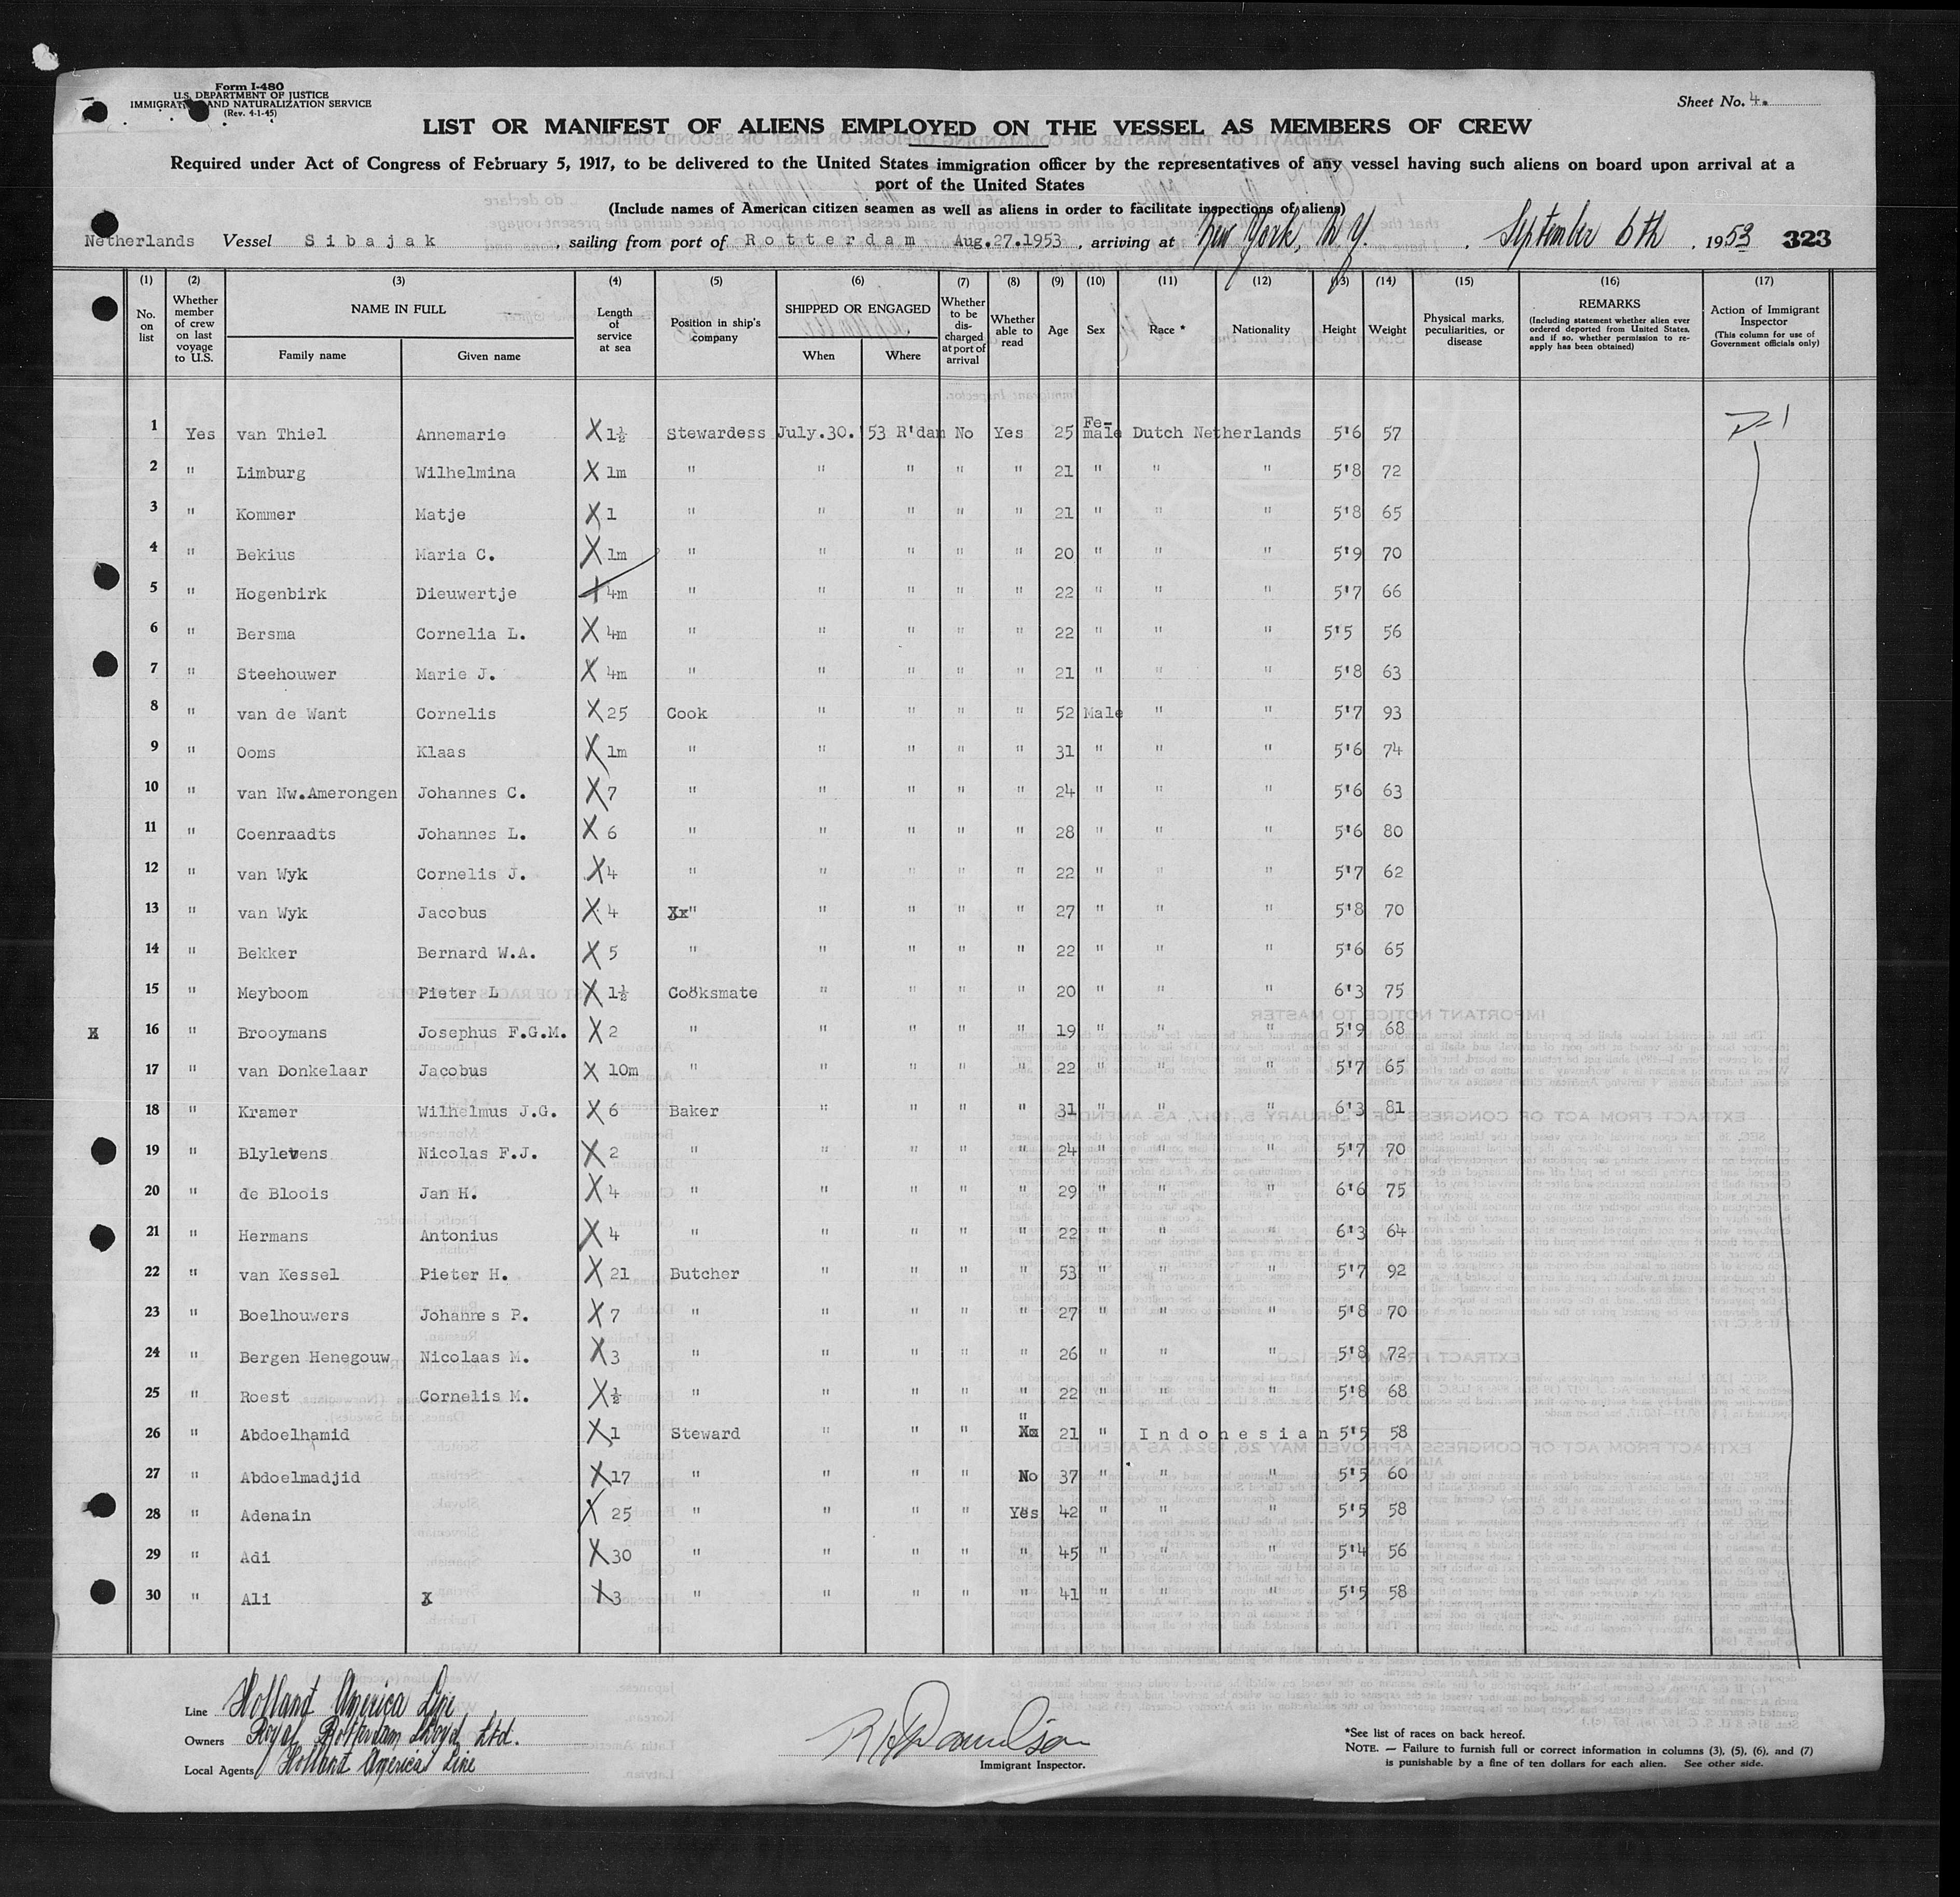 Form I-480
U.S. DEPARTMENT OF JUSTICE
IMMIGRATION AND NATURALIZATION SERVICE
(Rev. 4-1-45)
Sheet No. 4.
LIST OR MANIFEST OF ALIENS EMPLOYED ON THE VESSEL AS MEMBERS OF CREW
Required under Act of Congress of February 5, 1917, to be delivered to the United States immigration officer by the representatives of any vessel having such aliens on board upon arrival at a
port of the United States
(Include names of American citizen seamen as well as aliens in order to facilitate inspections of aliens)
Netherlands Vessel Sibajak, sailing from port of Rotterdam Aug.27.1953, arriving at New York, N.Y. September 6th, 1953 323
(1) (2) (3) (4) (5) (6) (7) (8) (9) (10) (11) (12) (13) (14) (15) (16) (17)
No. on list Whether member of crew on last voyage to U.S. NAME IN FULL Family name Given name Length of service at sea Position in ship's company SHIPPED OR ENGAGED When Where Whether to be discharged at port of arrival Whether able to read Age Sex Race * Nationality Height Weight Physical marks, peculiarities, or disease REMARKS (Including statement whether alien ever ordered deported from United States, and if so, whether permission to re-apply has been obtained) Action of Immigrant Inspector (This column for use of Government officials only)
1 Yes van Thiel Annemarie X 1½ Stewardess July.30.'53 R'dam No Yes 25 Fe-male Dutch Netherlands 5'6 57
2 " Limburg Wilhelmina X 1m " " " " " 21 " " " 5'8 72
3 " Kommer Matje X 1 " " " " " 21 " " " 5'8 65
4 " Bekius Maria C. X 1m " " " " " 20 " " " 5'9 70
5 " Hogenbirk Dieuwertje X 4m " " " " " 22 " " " 5'7 66
6 " Bersma Cornelia L. X 4m " " " " " 22 " " " 5'5 56
7 " Steehouwer Marie J. X 4m " " " " " 21 " " " 5'8 63
8 " van de Want Cornelis X 25 Cook " " " " 52 Male " " 5'7 93
9 " Ooms Klaas X 1m " " " " " 31 " " " 5'6 74
10 " van Nw.Amerongen Johannes C. X 7 " " " " " 24 " " " 5'6 63
11 " Coenraadts Johannes L. X 6 " " " " " 28 " " " 5'6 80
12 " van Wyk Cornelis J. X 4 " " " " " 22 " " " 5'7 62
13 " van Wyk Jacobus X 4 Xx" " " " " 27 " " " 5'8 70
14 " Bekker Bernard W.A. X 5 " " " " " 22 " " " 5'6 65
15 " Meyboom Pieter L X 1½ Cooksmate " " " " 20 " " " 6'3 75
X 16 " Brooymans Josephus F.G.M. X 2 " " " " " 19 " " " 5'9 68
17 " van Donkelaar Jacobus X 10m " " " " " 22 " " " 5'7 65
18 " Kramer Wilhelmus J.G. X 6 Baker " " " " 31 " " " 6'3 81
19 " Blylevens Nicolas F.J. X 2 " " " " " 24 " " " 5'7 70
20 " de Bloois Jan H. X 4 " " " " " 29 " " " 6'6 75
21 " Hermans Antonius X 4 " " " " " 22 " " " 6'3 64
22 " van Kessel Pieter H. X 21 Butcher " " " " 53 " " " 5'7 92
23 " Boelhouwers Johannes P. X 7 " " " " " 27 " " " 5'8 70
24 " Bergen Henegouw Nicolaas M. X 3 " " " " " 26 " " " 5'8 72
25 " Roest Cornelis M. X ½ " " " " " 22 " " " 5'8 68
26 " Abdoelhamid X 1 Steward " " " " 21 " Indonesian 5'5 58
27 " Abdoelmadjid X 17 " " " " No 37 " " " 5'5 60
28 " Adenain X 25 " " " " Yes 42 " " " 5'5 58
29 " Adi X 30 " " " " " 45 " " " 5'4 56
30 " Ali X X 3 " " " " " 41 " " " 5'5 58
Line Holland America Line
Owners Royal Rotterdam Lloyd Ltd.
Local Agents Holland America Line
Immigrant Inspector.
*See list of races on back hereof.
NOTE. — Failure to furnish full or correct information in columns (3), (5), (6), and (7)
is punishable by a fine of ten dollars for each alien. See other side.